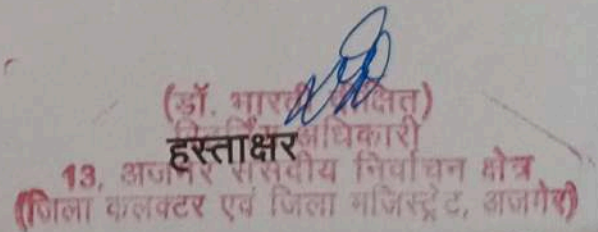 (डॉ. भारती दीक्षित)
रिटर्निंग अधिकारी
हस्ताक्षर
13, अजमेर संसदीय निर्वाचन क्षेत्र
(जिला कलक्टर एवं जिला मजिस्ट्रेट, अजमेर)